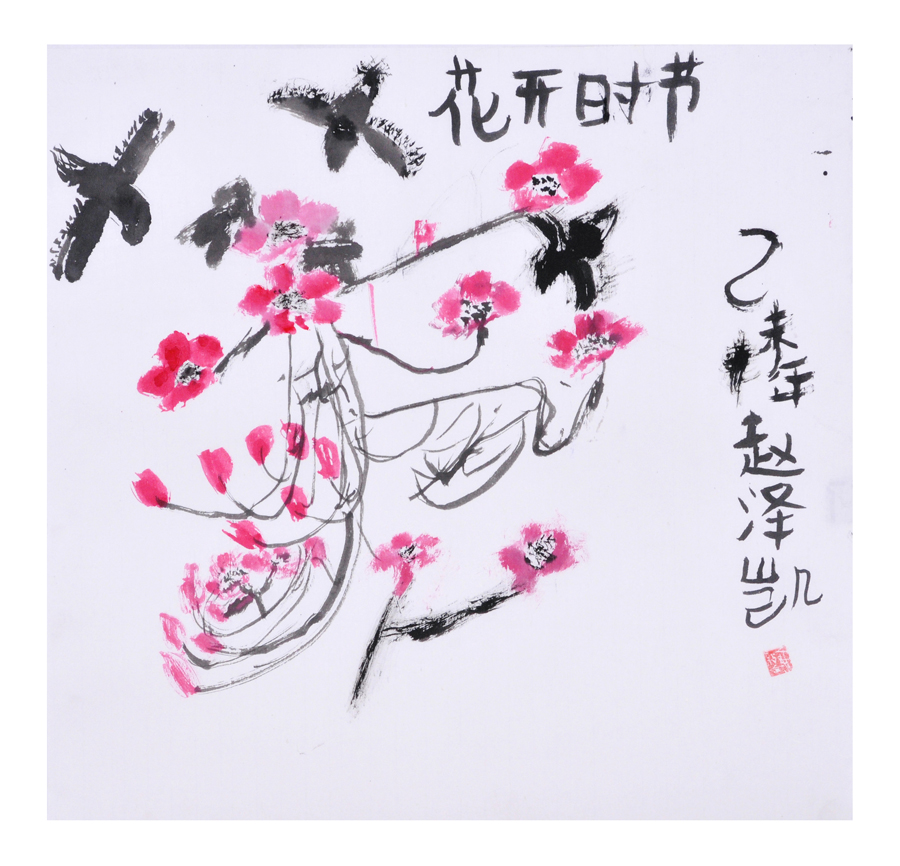 花开时节
乙未年
赵泽凯